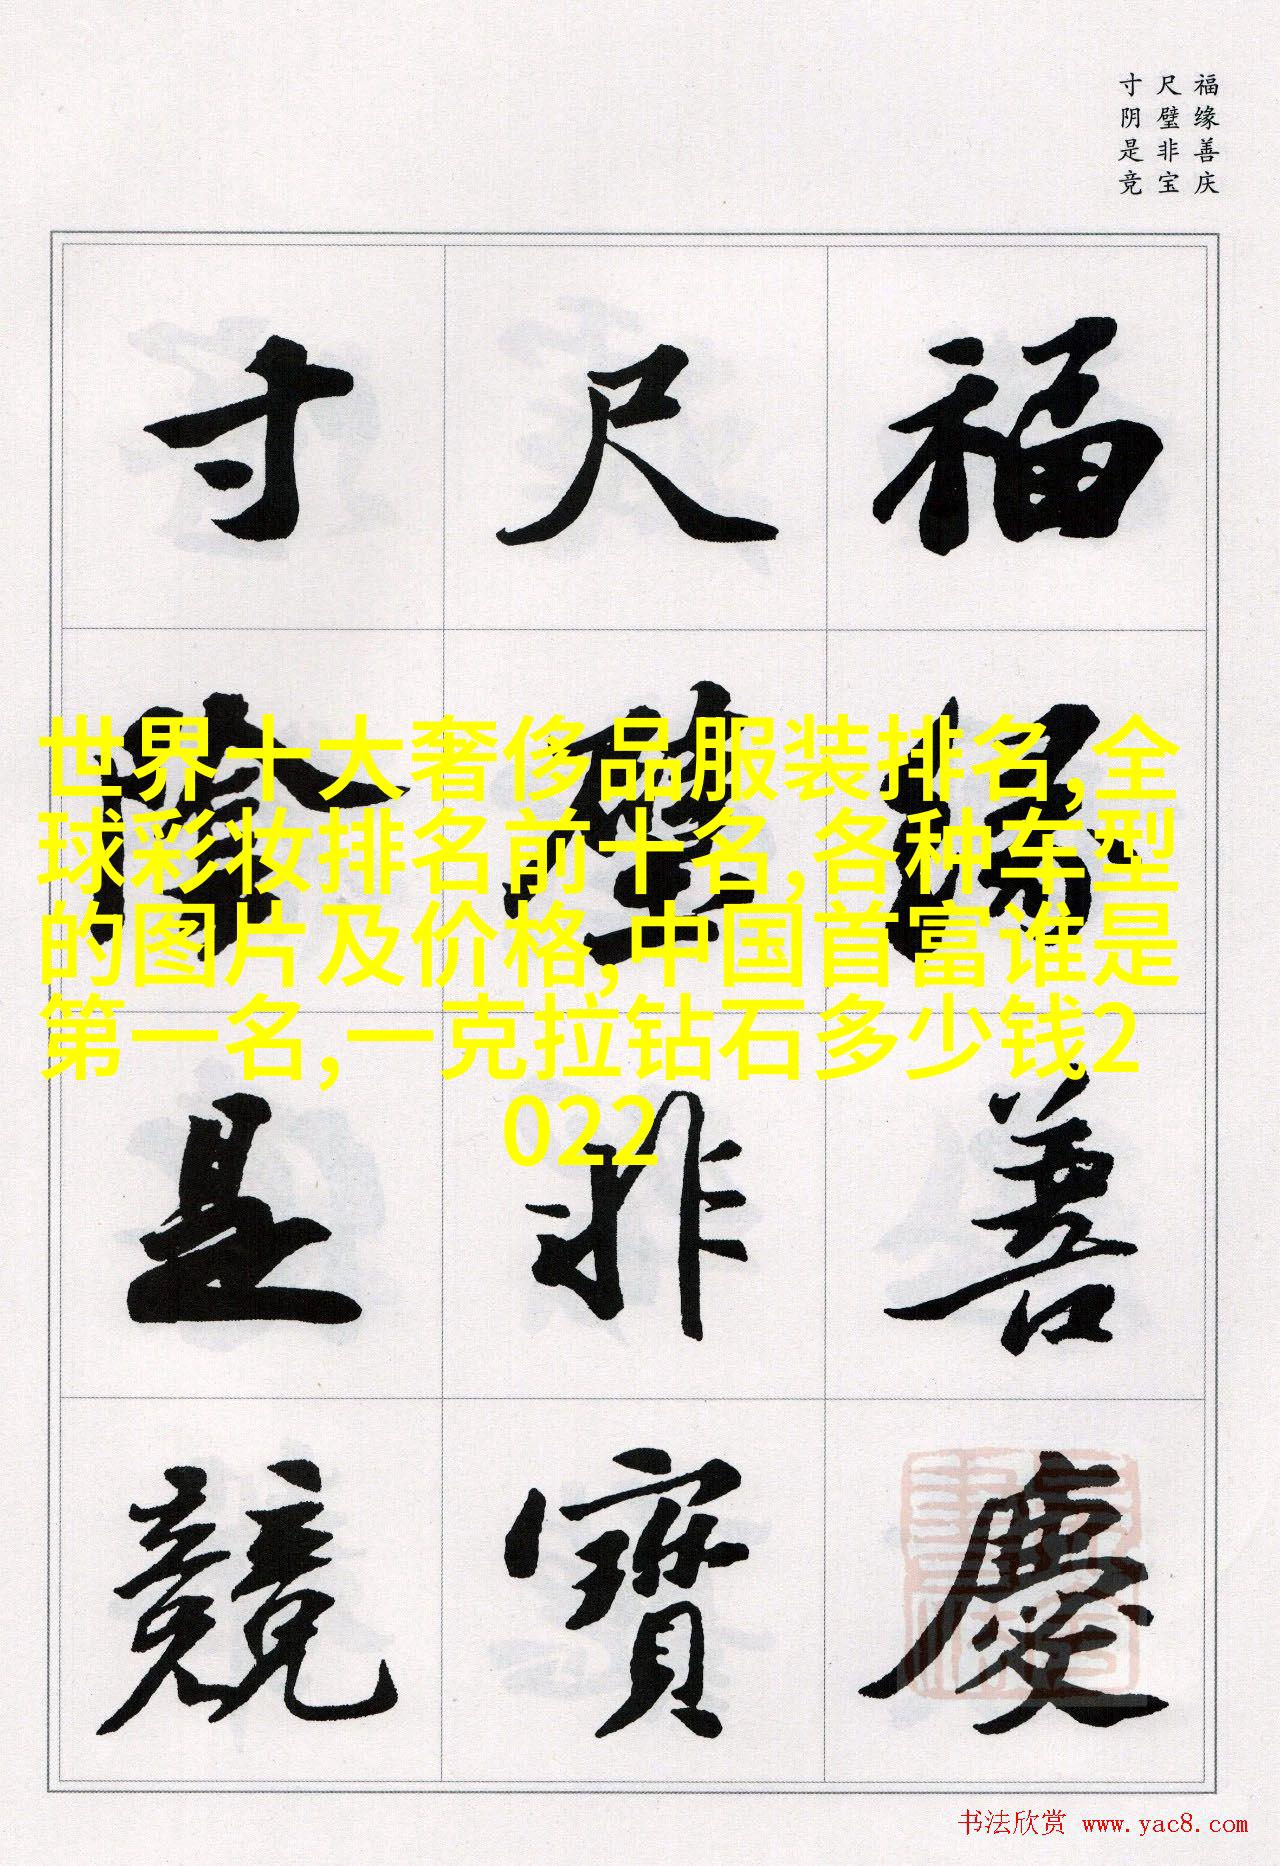 福缘善庆
尺璧非宝
寸阴是竞
福緣善慶
尺璧非寶
寸陰是競
世界十大奢侈品服装排名,全
球彩妆排名前十名,各种车型
的图片及价格,中国首富谁是
第一名,一克拉钻石多少钱2
022
书法欣赏 www.yac8.com